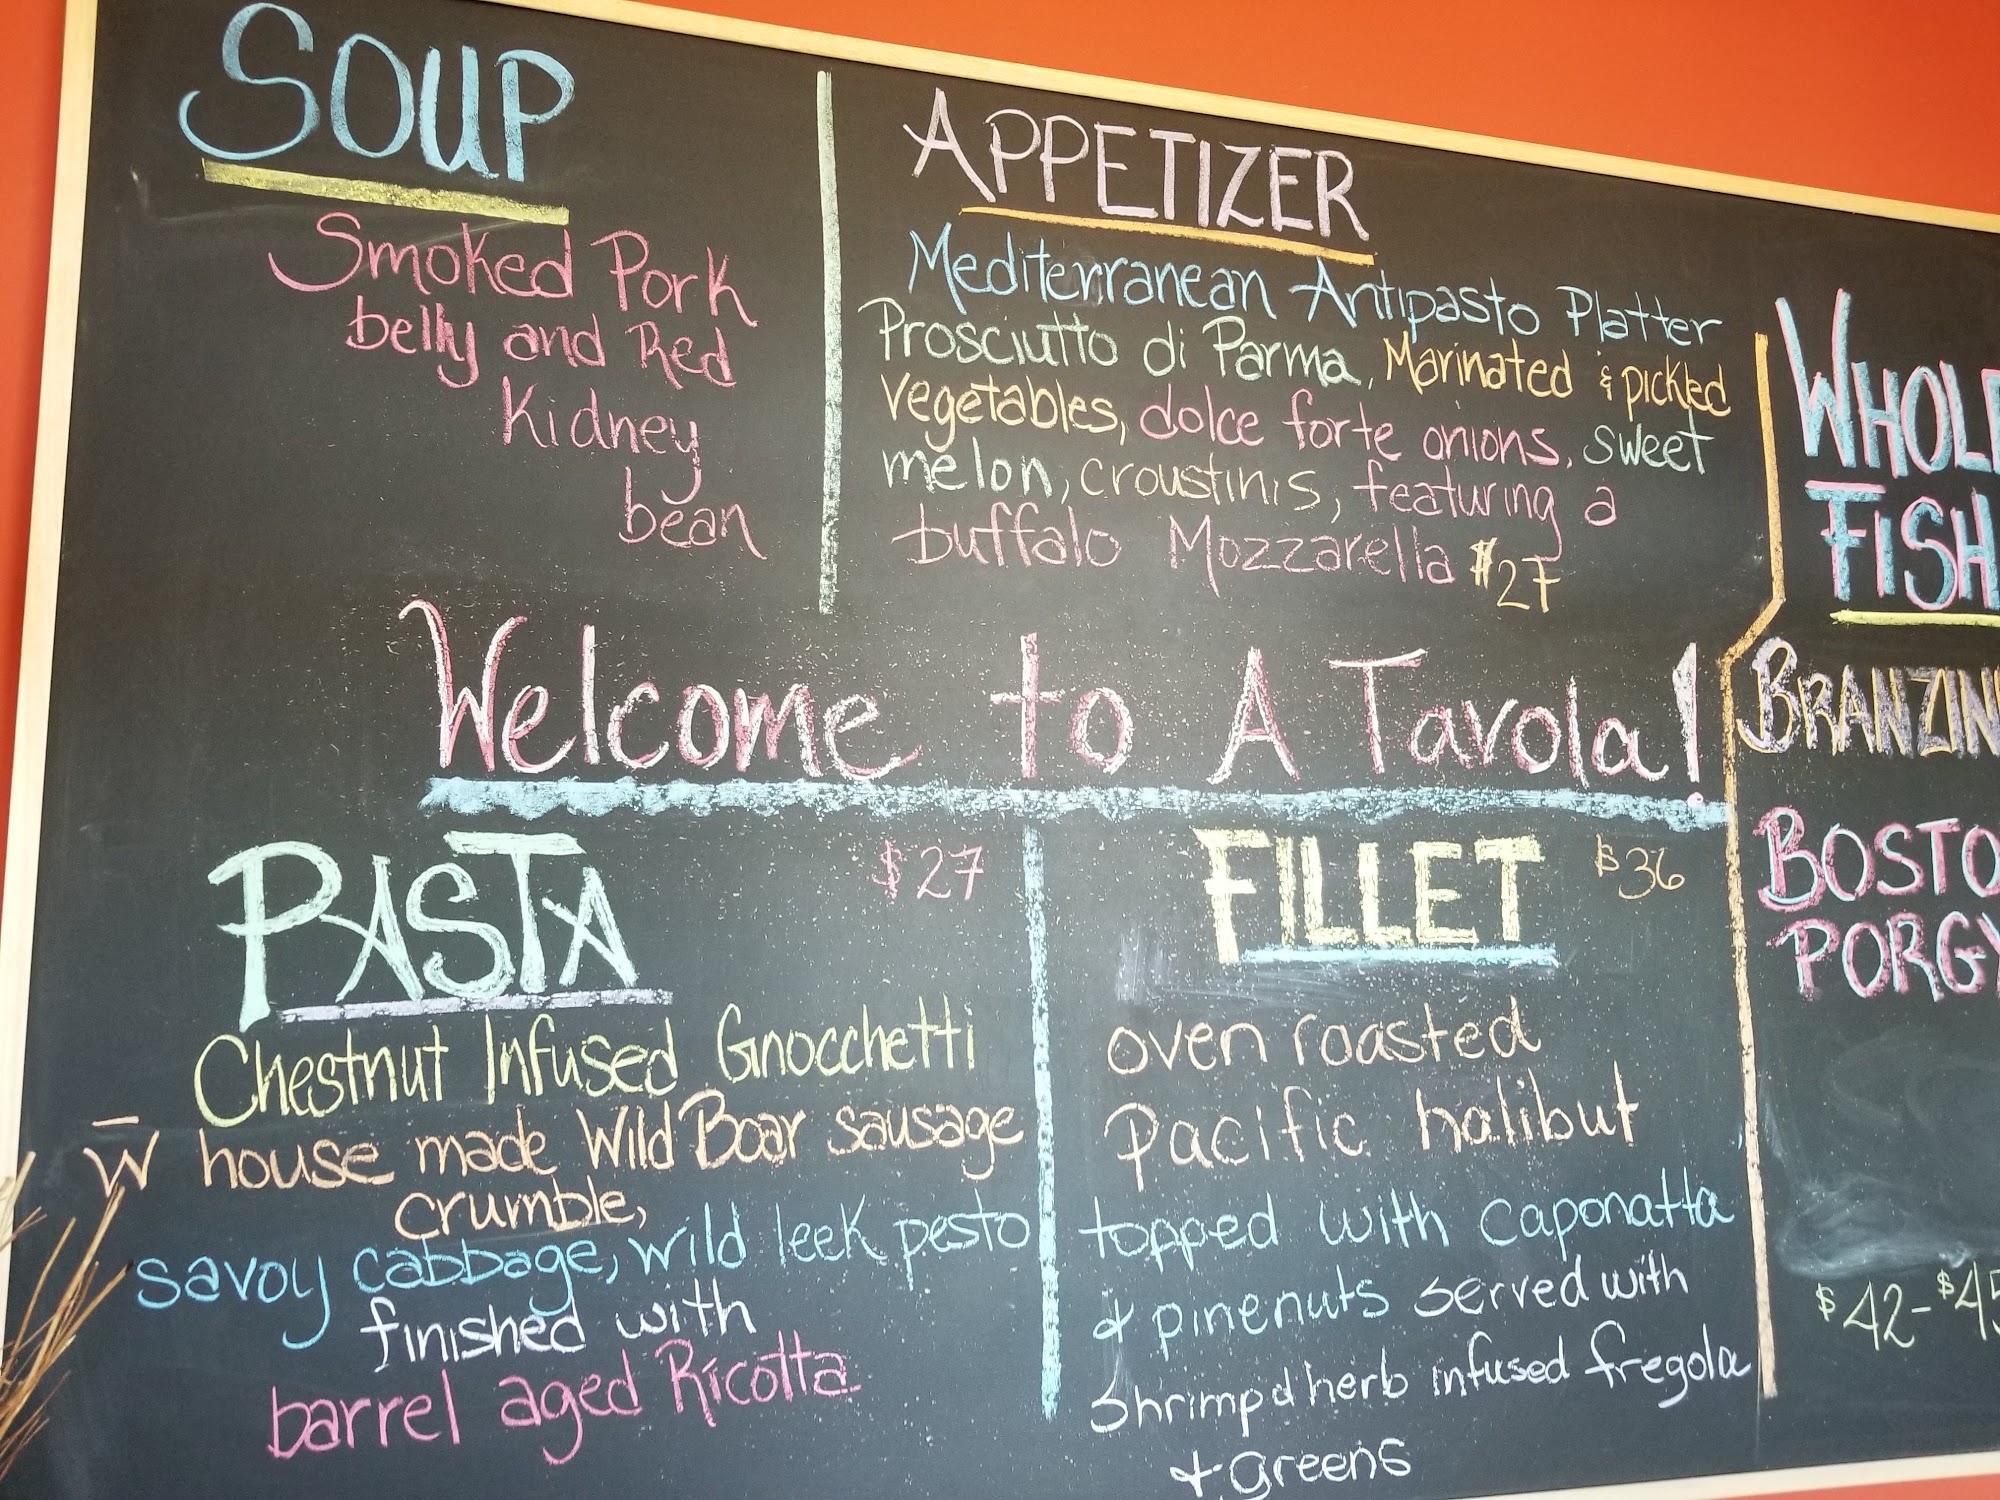 SOUP
Smoked Pork
belly and Red
Kidney
bean
APPETIZER
Mediterranean Antipasto Platter
Prosciutto di Parma, Marinated & pickled
vegetables, dolce forte onions, sweet
melon, croustinis, featuring a
buffalo Mozzarella $27
Welcome to A Tavola!
PASTA $27
Chestnut Infused Gnocchetti
W house made Wild Boar sausage
crumble,
savoy cabbage, wild leek pesto
finished with
barrel aged Ricotta
FILLET $36
oven roasted
Pacific halibut
topped with caponatta
& pinenuts served with
shrimp & herb infused fregola
& greens
WHOL
FISH
BRANZIN
BOSTO
PORGY
$42-$45